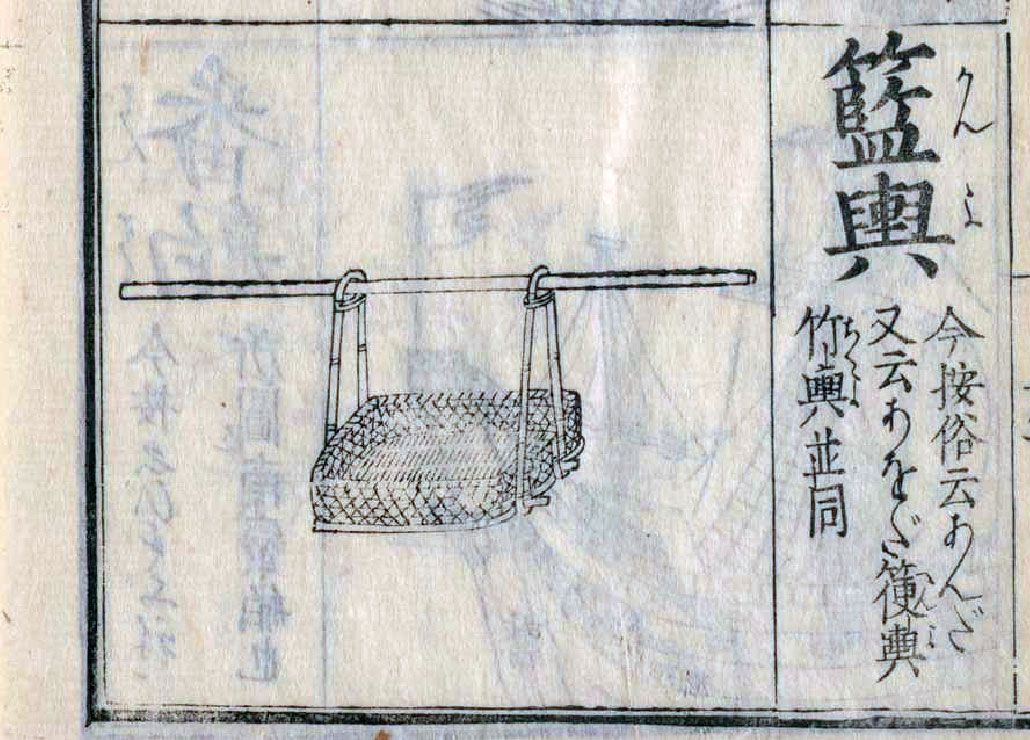 籃輿
らんよ
今按俗云あんだ
又云あをだ箯輿
へんよ
竹輿並同
ちくよ